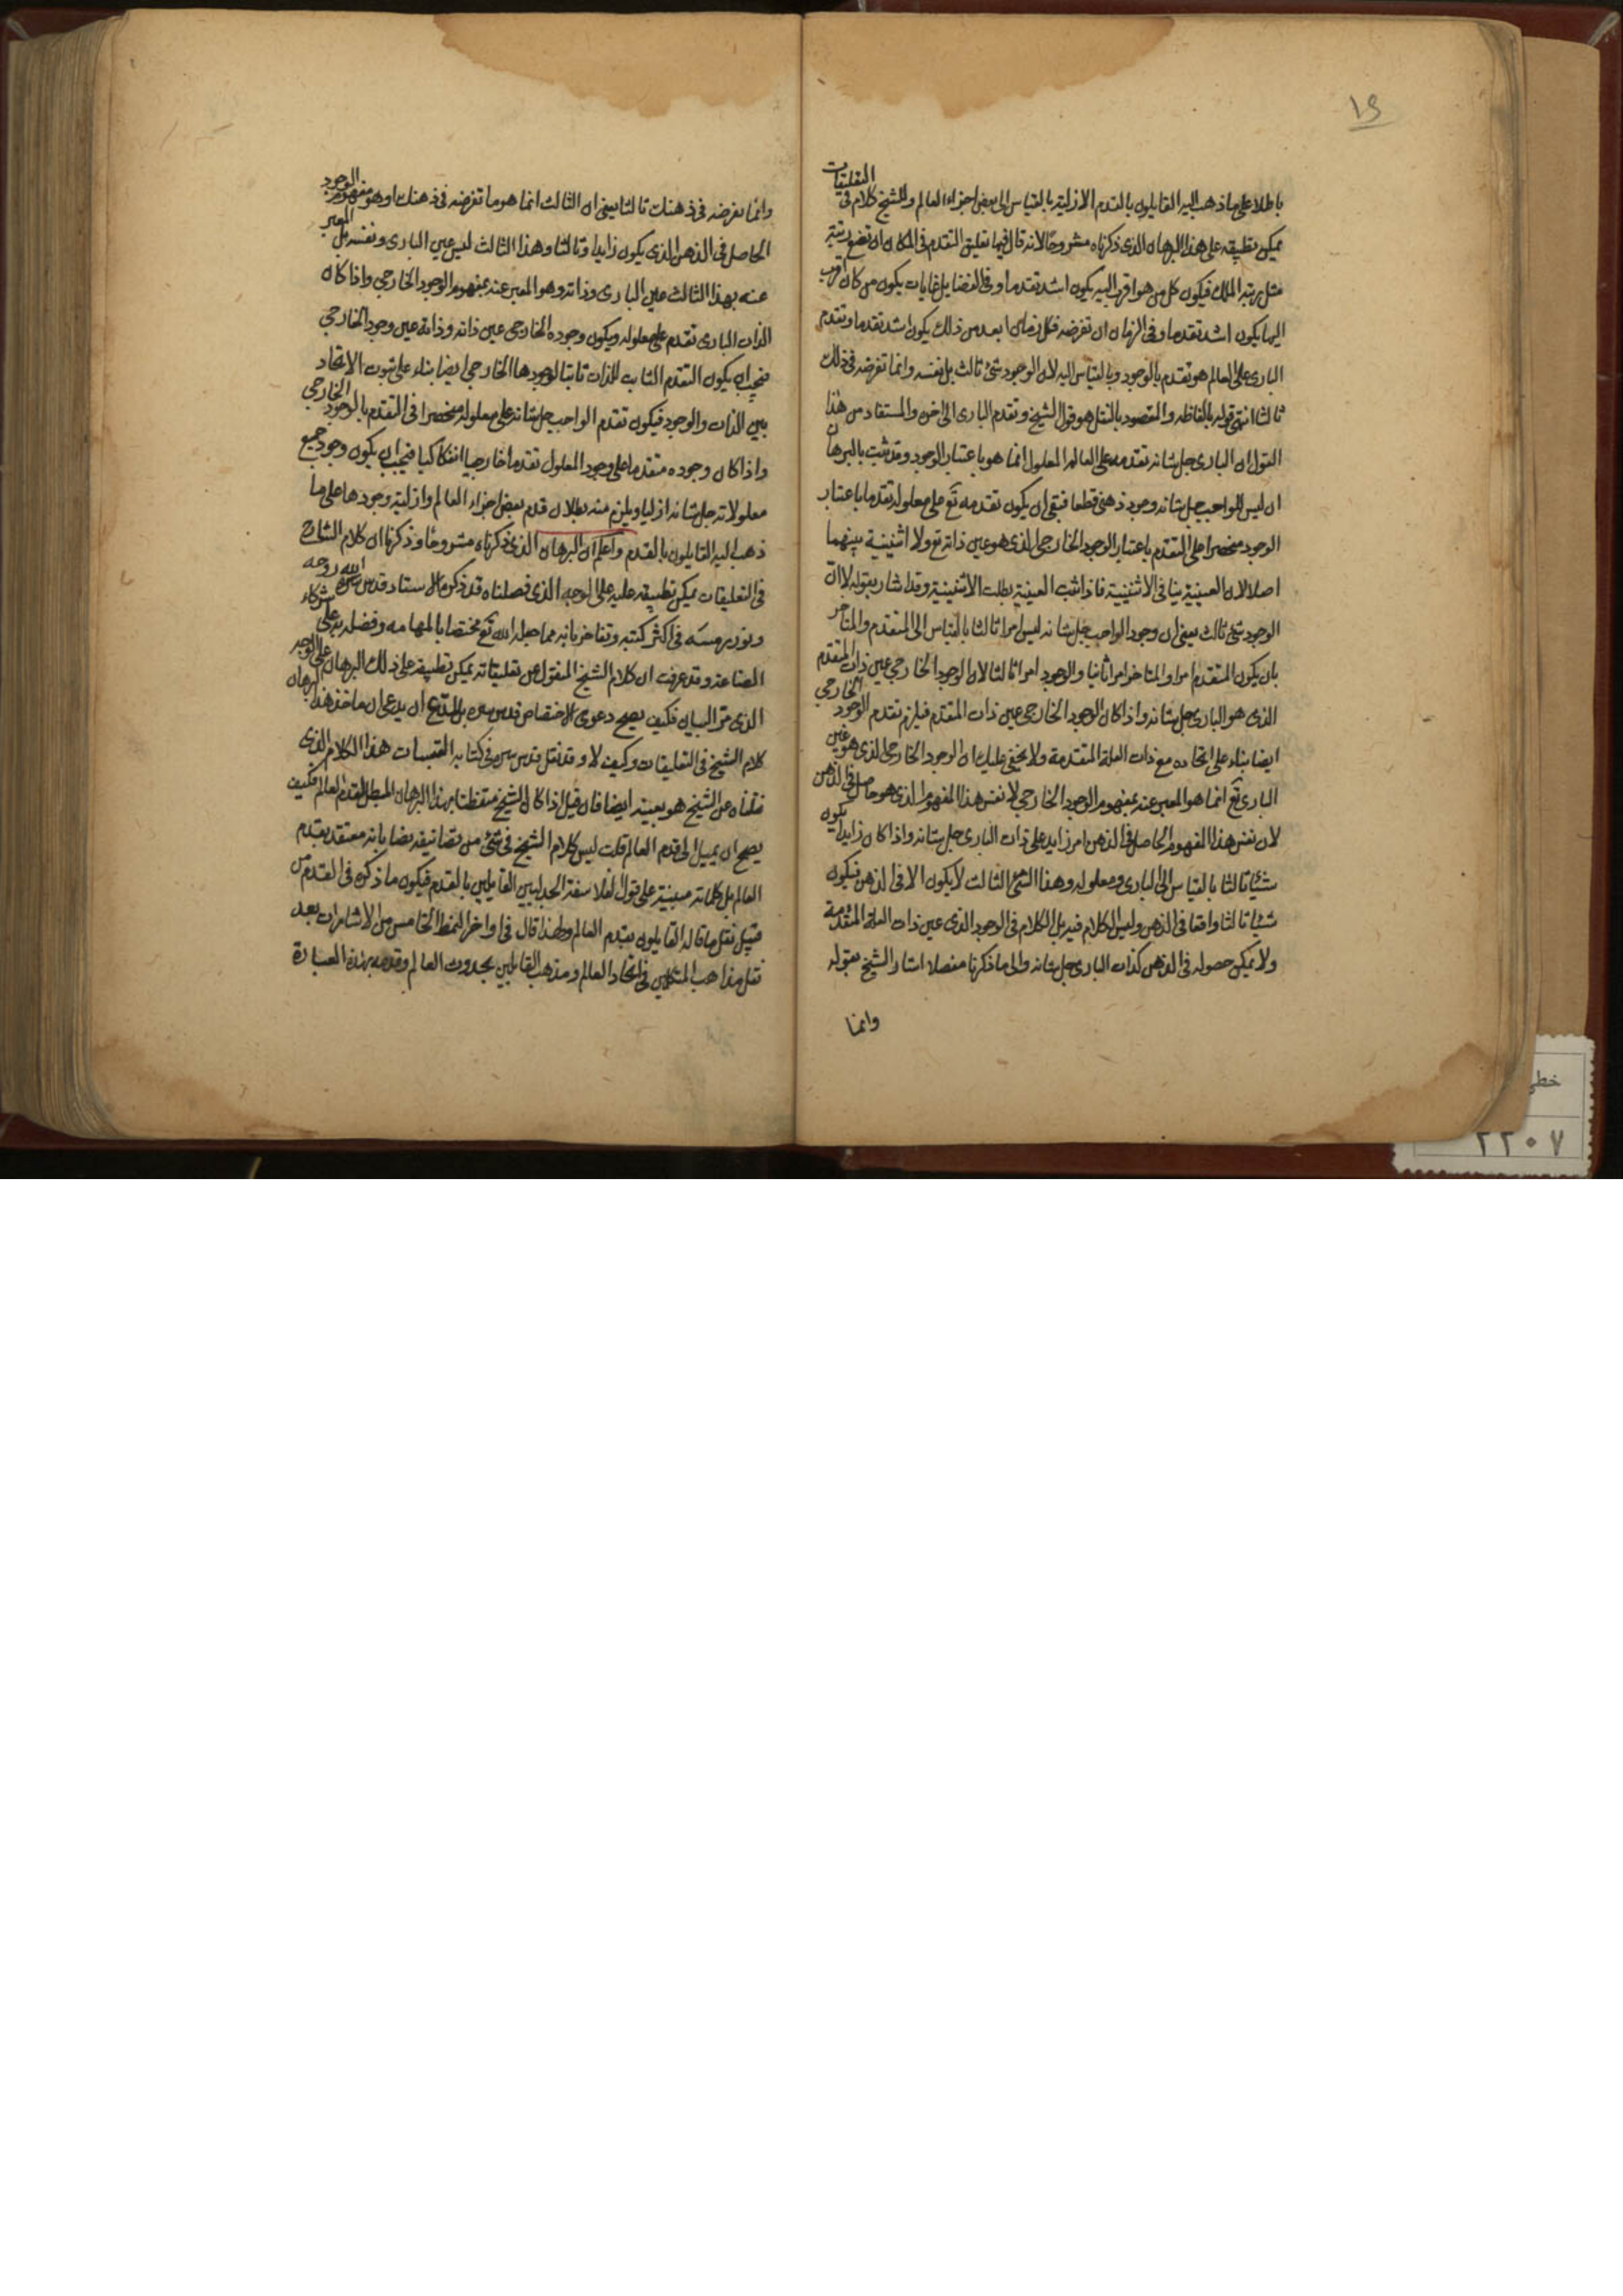 ١٩
باطلا على ما ذهب اليه القايلون بالقدم الازلية بالقياس الى بعض اجزاء العالم وللشيخ كلام فى التعليقات
يمكن تطبيقه على هذا البرهان الذى ذكرناه مشروحا لانه قال فيها تعليق التقدم فى المكان ان تضع رتبة
مثل مرتبة الملك فيكون كل من هو اقرب اليه يكون اشد تقدما وفى الفضايل غايات يكون من كان اقرب
اليها يكون اشد تقدما وفى الزمان ان تفرضه فكل زمان ابعد من ذلك يكون اشد تقدما وتقدم
البارى على العالم هو تقدم بالوجود وبالقياس اليه لان الوجود شئ ثالث بل نفسه وانما تفرضه فى ذلك
ثالثا انتهى قوله بالفاظه والمقصود بالنقل هو قول الشيخ وتقدم البارى الى اخره والمستفاد من هذا
القول ان البارى جل شانه تقدمه على العالم المعلول انما هو باعتبار الوجود وقد ثبت بالبرهان
ان ليس للواجب جل شانه وجود ذهنى قطعا فبقى ان يكون تقدمه تع على معلوله تقدما باعتبار
الوجود منحصرا على التقدم باعتبار الوجود الخارجى الذى هو عين ذاته تع ولا اثنينية بينهما
اصلا لان العينية ينافى الاثنينية فاذا ثبت العينية بطلت الاثنينية وقد اشار بقوله لا ان
الوجود شئ ثالث يعنى ان وجود الواجب جل شانه ليس امرا ثالثا بالقياس الى المتقدم والمتاخر
بان يكون المتقدم امرا والمتاخر امرا ثانيا والوجود امرا ثالثا لان الوجود الخارجى عين ذات المتقدم
الذى هو البارى جل شانه واذا كان الوجود الخارجى عين ذات المتقدم فيلزم تقدم الوجود الخارجى
ايضا بناء على اتحاده مع ذات العلة المتقدمة ولا يخفى عليك ان الوجود الخارجى الذى هو عين
البارى تع انما هو المعبر عنه بمفهوم الوجود الخارجى لا نفس هذا المفهوم الذى هو حاصل فى الذهن
لان نفس هذا المفهوم الحاصل فى الذهن امر زايد على ذات البارى جل شانه واذا كان زايدا يكون
شيئا ثالثا بالقياس الى البارى ومعلوله وهذا الشئ الثالث لا يكون الا فى الذهن فيكون
شيئا ثالثا واقعا فى الذهن وليس الكلام فيه بل الكلام فى الوجود الذى عين ذات العلة المتقدمة
ولا يمكن حصوله فى الذهن كذات البارى جل شانه والى ما ذكرنا مفصلا اشار الشيخ بقوله
وانما
وانما تفرضه فى ذهنك ثالثا يعنى ان الثالث انما هو ما تفرضه فى ذهنك وهو مفهوم الوجود
الحاصل فى الذهن الذى يكون زايدا وثالثا وهذا الثالث ليس عين البارى ونفسه بل المعبر
عنه بهذا الثالث عين البارى وذاته وهو المعبر عنه بمفهوم الوجود الخارجى واذا كان
الذات البارى تقدم على معلوله ويكون وجوده الخارجى عين ذاته وذاته عين وجود الخارجى
فيجب ان يكون التقدم الثابت للذات ثابتا لوجودها الخارجى ايضا بناء على ثبوت الاتحاد
بين الذات والوجود فيكون تقدم الواجب جل شانه على معلوله منحصرا فى التقدم بالوجود الخارجى
واذا كان وجوده متقدما على وجود المعلول تقدما خارجيا انفكاكيا فيجب ان يكون وجود جميع
معلولاته جل شانه ازليا ويلزم منه بطلان قدم بعض اجزاء العالم وازلية وجودها على ما
ذهب اليه القايلون بالقدم واعلم ان البرهان الذى ذكرناه مشروحا وذكرنا ان كلام الشارح
فى التعليقات يمكن تطبيقه عليه على الوجه الذى فصلناه قد ذكره الاستاد قدس الله روحه
ونور رمسه فى اكثر كتبه وتفاخر بانه مما جعله الله تع مختصا بالهامه وفضله به على شركاء
الصناعة وقد عرفت ان كلام الشيخ المنقول عن تعليقاته يمكن تطبيقه على ذلك البرهان على الوجه
الذى مر البيان فكيف يصح دعوى الاختصاص قدس سره بل ان يدعى ان ماخذ هذا البرهان
كلام الشيخ فى التعليقات وكيف لا وقد نقل قدس سره فى كتابه القبسات هذا الكلام الذى
نقلناه عن الشيخ هو بعينه ايضا فان قيل اذا كان الشيخ متفطنا بهذا البرهان المبطل لقدم العالم فكيف
يصح ان يميل الى قدم العالم قلت ليس كلام الشيخ فى شئ من تصانيفه نصا بانه معتقد بقدم
العالم بل كلماته مبنية على قول الفلاسفة الجدليين القايلين بالقدم فيكون ما ذكره فى القدم من
قبيل نقل ما قاله القايلون بقدم العالم ولهذا قال فى اواخر النمط الخامس من الاشارات بعد
نقل مذاهب المتكلمين فى اتحاد العالم ومذهب القايلين بحدوث العالم وقدمه بهذه العبارة
خطى
٢٢٠٧